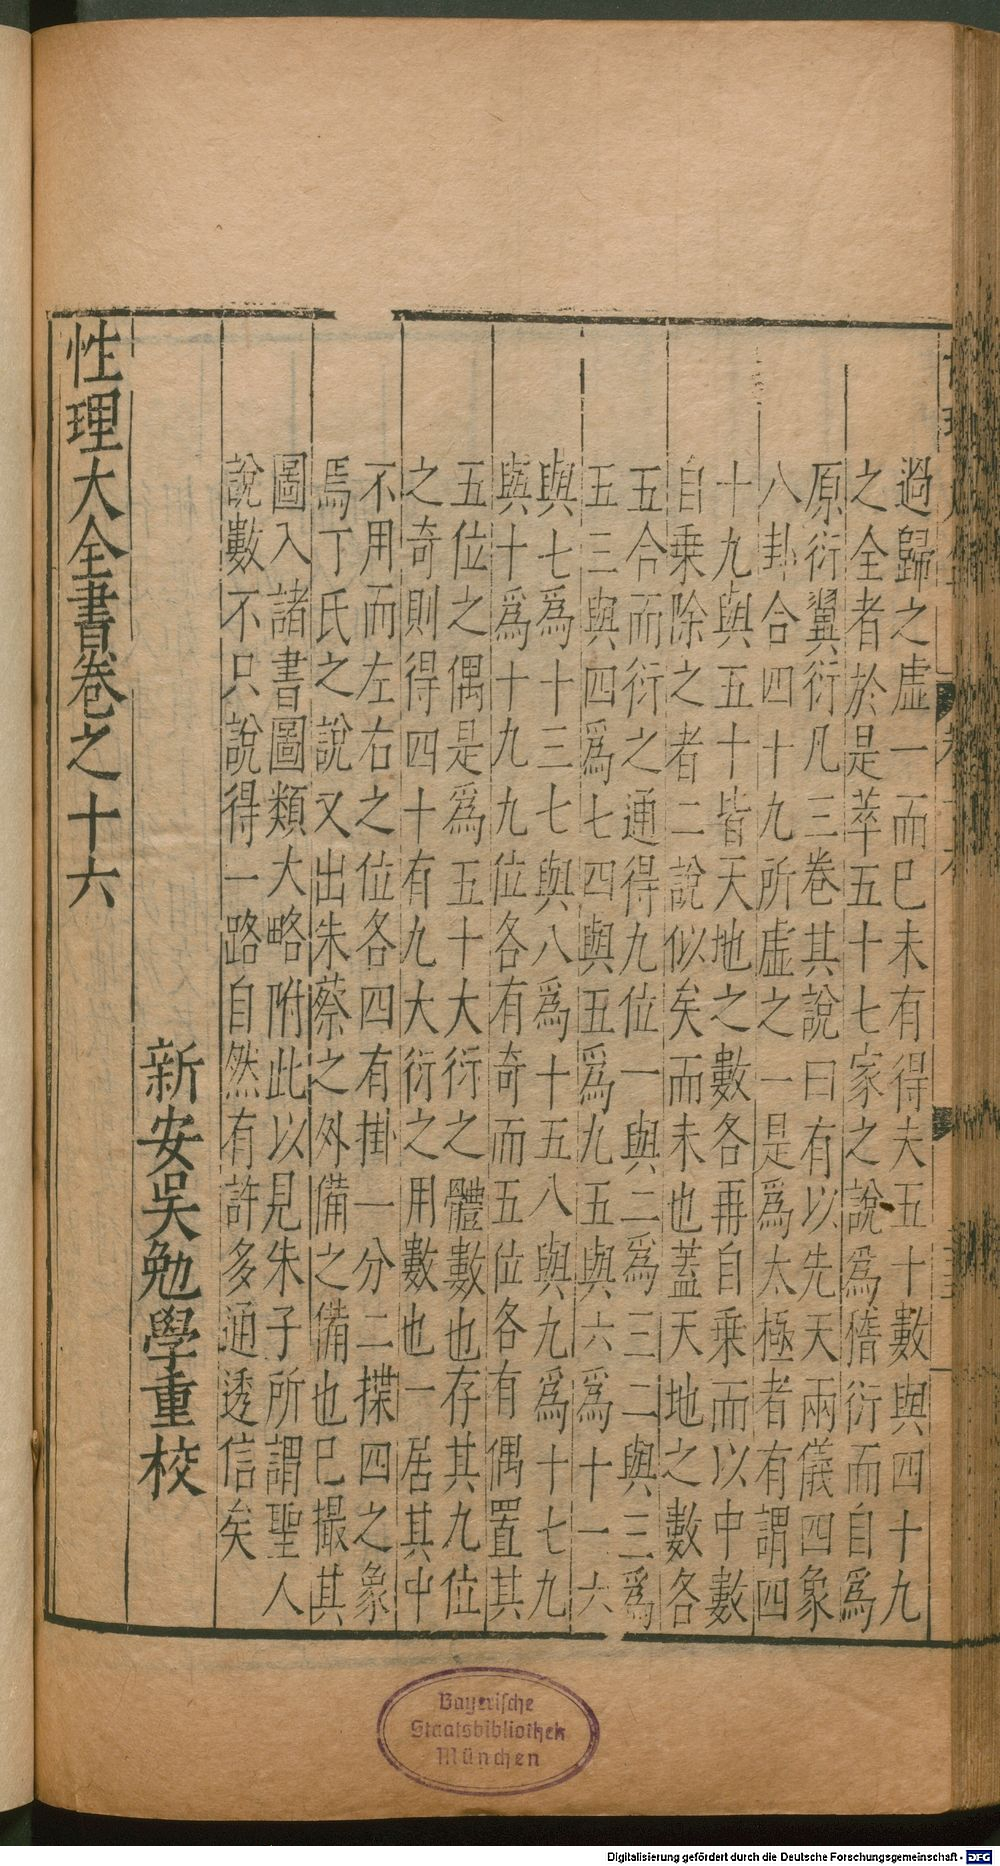 過歸之虛一而已未有得夫五十數與四十九
之全者於是萃五十七家之說爲𢡟衍而自爲
原衍翼衍凡三卷其說曰有以先天兩儀四象
八卦合四十九所虛之一是爲太極者有謂四
十九與五十皆天地之數各再自乘而以中數
自乘除之者二說似矣而未也蓋天地之數各
五合而衍之通得九位一與二爲三二與三爲
五三與四爲七四與五爲九五與六爲十一六
與七爲十三七與八爲十五八與九爲十七九
與十爲十九九位各有奇而五位各有偶置其
五位之偶是爲五十大衍之體數也存其九位
之奇則得四十有九大衍之用數也一居其中
不用而左右之位各四有掛一分二揲四之象
焉丁氏之說又出朱蔡之外備之備也已撮其
圖入諸書圖類大略附此以見朱子所謂聖人
說數不只說得一路自然有許多通透信矣
新安吳勉學重校
性理大全書卷之十六
Bayerische
Staatsbibliothek
München
Digitalisierung gefördert durch die Deutsche Forschungsgemeinschaft - DFG